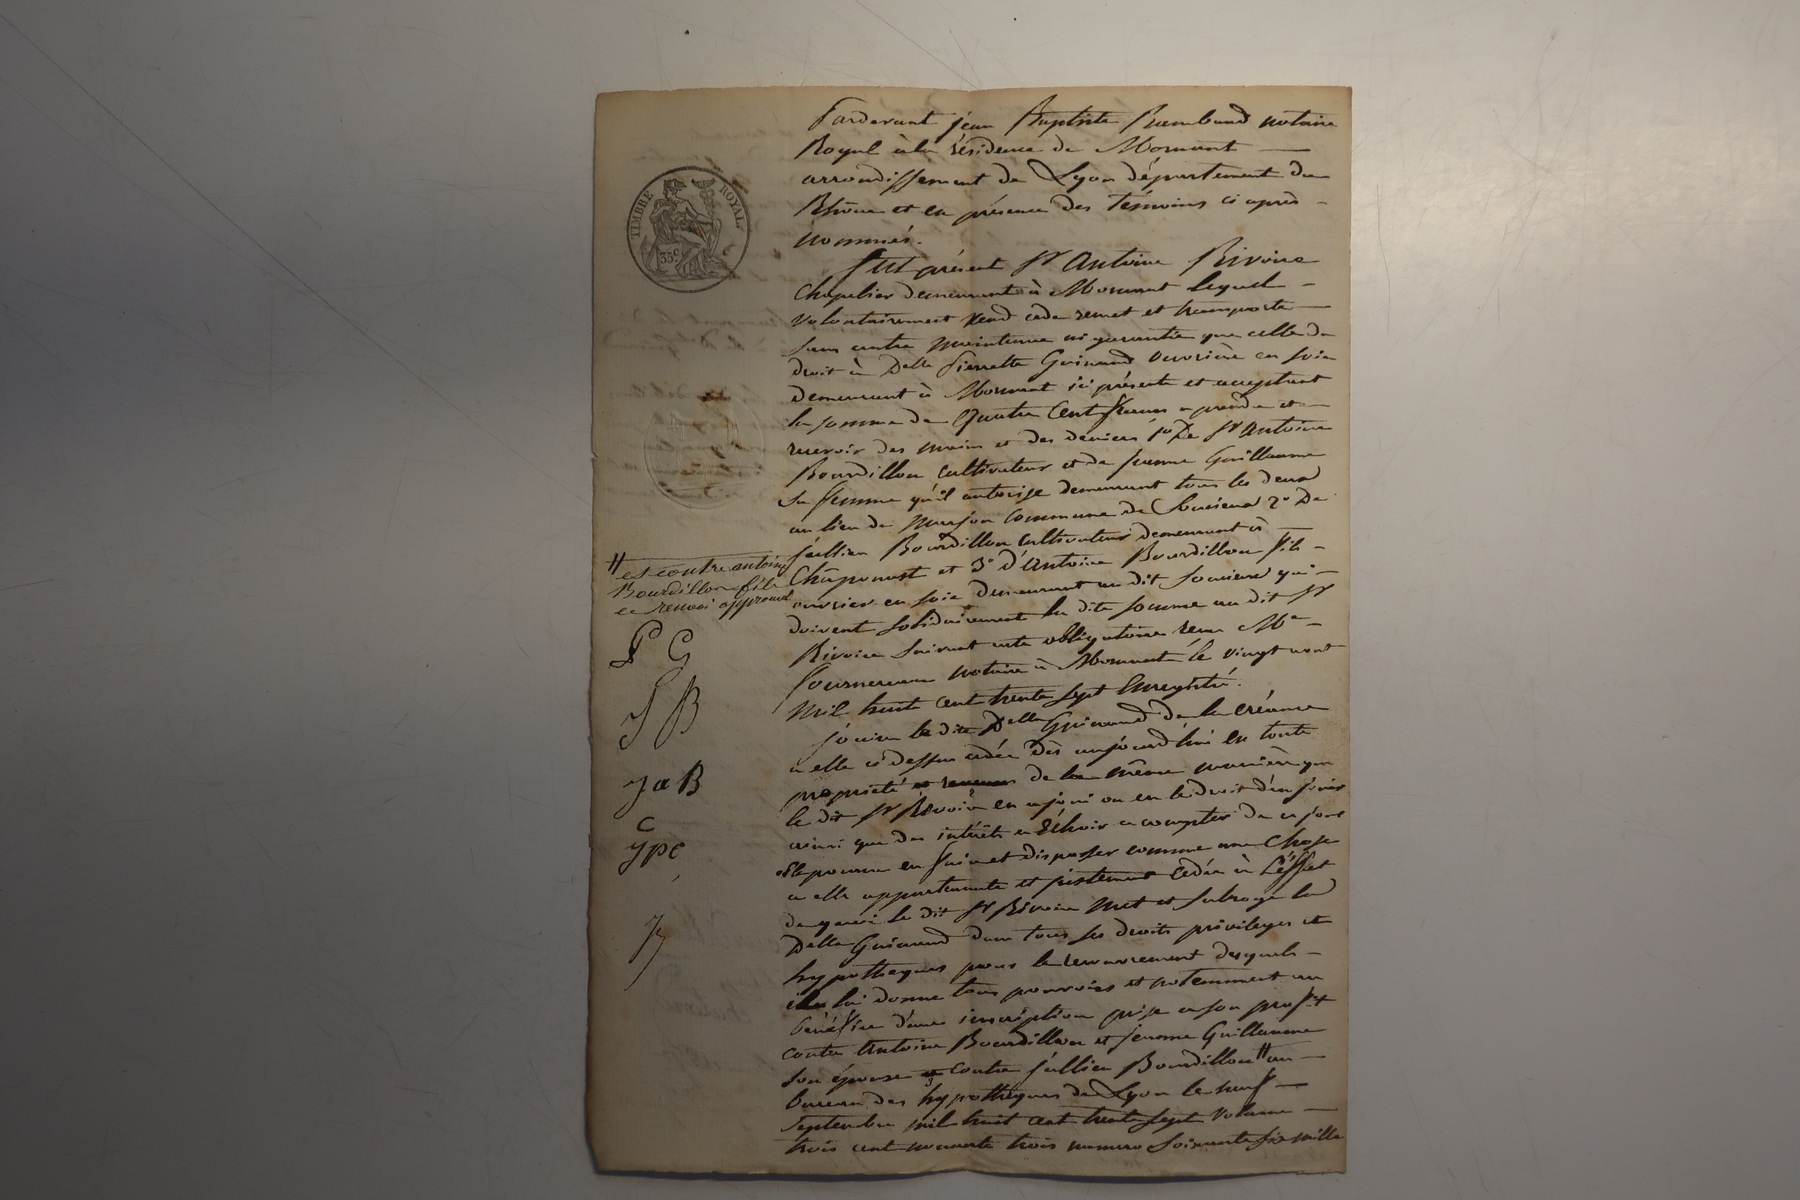 TIMBRE ROYAL
35 c.
Pardevant jean Baptiste Rambaud notaire
Royal à la résidence de Mornant
arrondissement de Lyon département du
Rhône et en présence des témoins ci après
nommés.
fut présent Sr Antoine Rivoire
Chapelier demeurant à Mornant lequel
volontairement vend cede remet et transporte
sans autre maintenue ni garantie que celle de
droit à Delle Pierrette Guinand ouvrière en soie
demeurant à Mornant ici présente et acceptant
la somme de quatre Cent francs a prendre et
recevoir des mains et des deniers 1o De Sr Antoine
Bourdillon cultivateur et de jeanne Guillaume
sa femme qu'il autorise demeurant tous les deux
au lieu de Marjon Commune de Soucieux 2o De
jullien Bourdillon cultivateur demeurant à
Chaponost et 3o d'Antoine Bourdillon fils
ouvrier en soie demeurant au dit Soucieux qui
doivent solidairement la dite somme au dit Sr
Rivoire suivant acte obligatoire reçu Me
fournereau notaire à Mornant le vingt août
Mil huit cent trente sept Enregistré.
jouira la dite Delle Guinand de la créance
a elle ci dessus cédée dès aujourd'hui en toute
propriété de la même manière que
le dit Sr Rivoire en a joui ou eu le droit d'en jouir
ainsi que des intérêts a échoir a compter de ce jour
elle pourra en faire et disposer comme une chose
a elle appartenante et justement cédée à L'effet
de quoi le dit Sr Rivoire met et subroge la
Delle Guinand dans tous ses droits privileges et
hypotheques pour le recouvrement desquels
il lui donne tous pouvoirs et notemment au
bénéfice d'une inscription prise a son profit
contre Antoine Bourdillon et jeanne Guillaume
son épouse contre jullien Bourdillon # au
bureau des hypothèques de Lyon le neuf
septembre mil huit cent trente sept volume
trois cent nonante trois numero soixante six mille
# et contre antoine
Bourdillon fils
ce renvoi approuvé
P G
J B
J a B
C
J P C